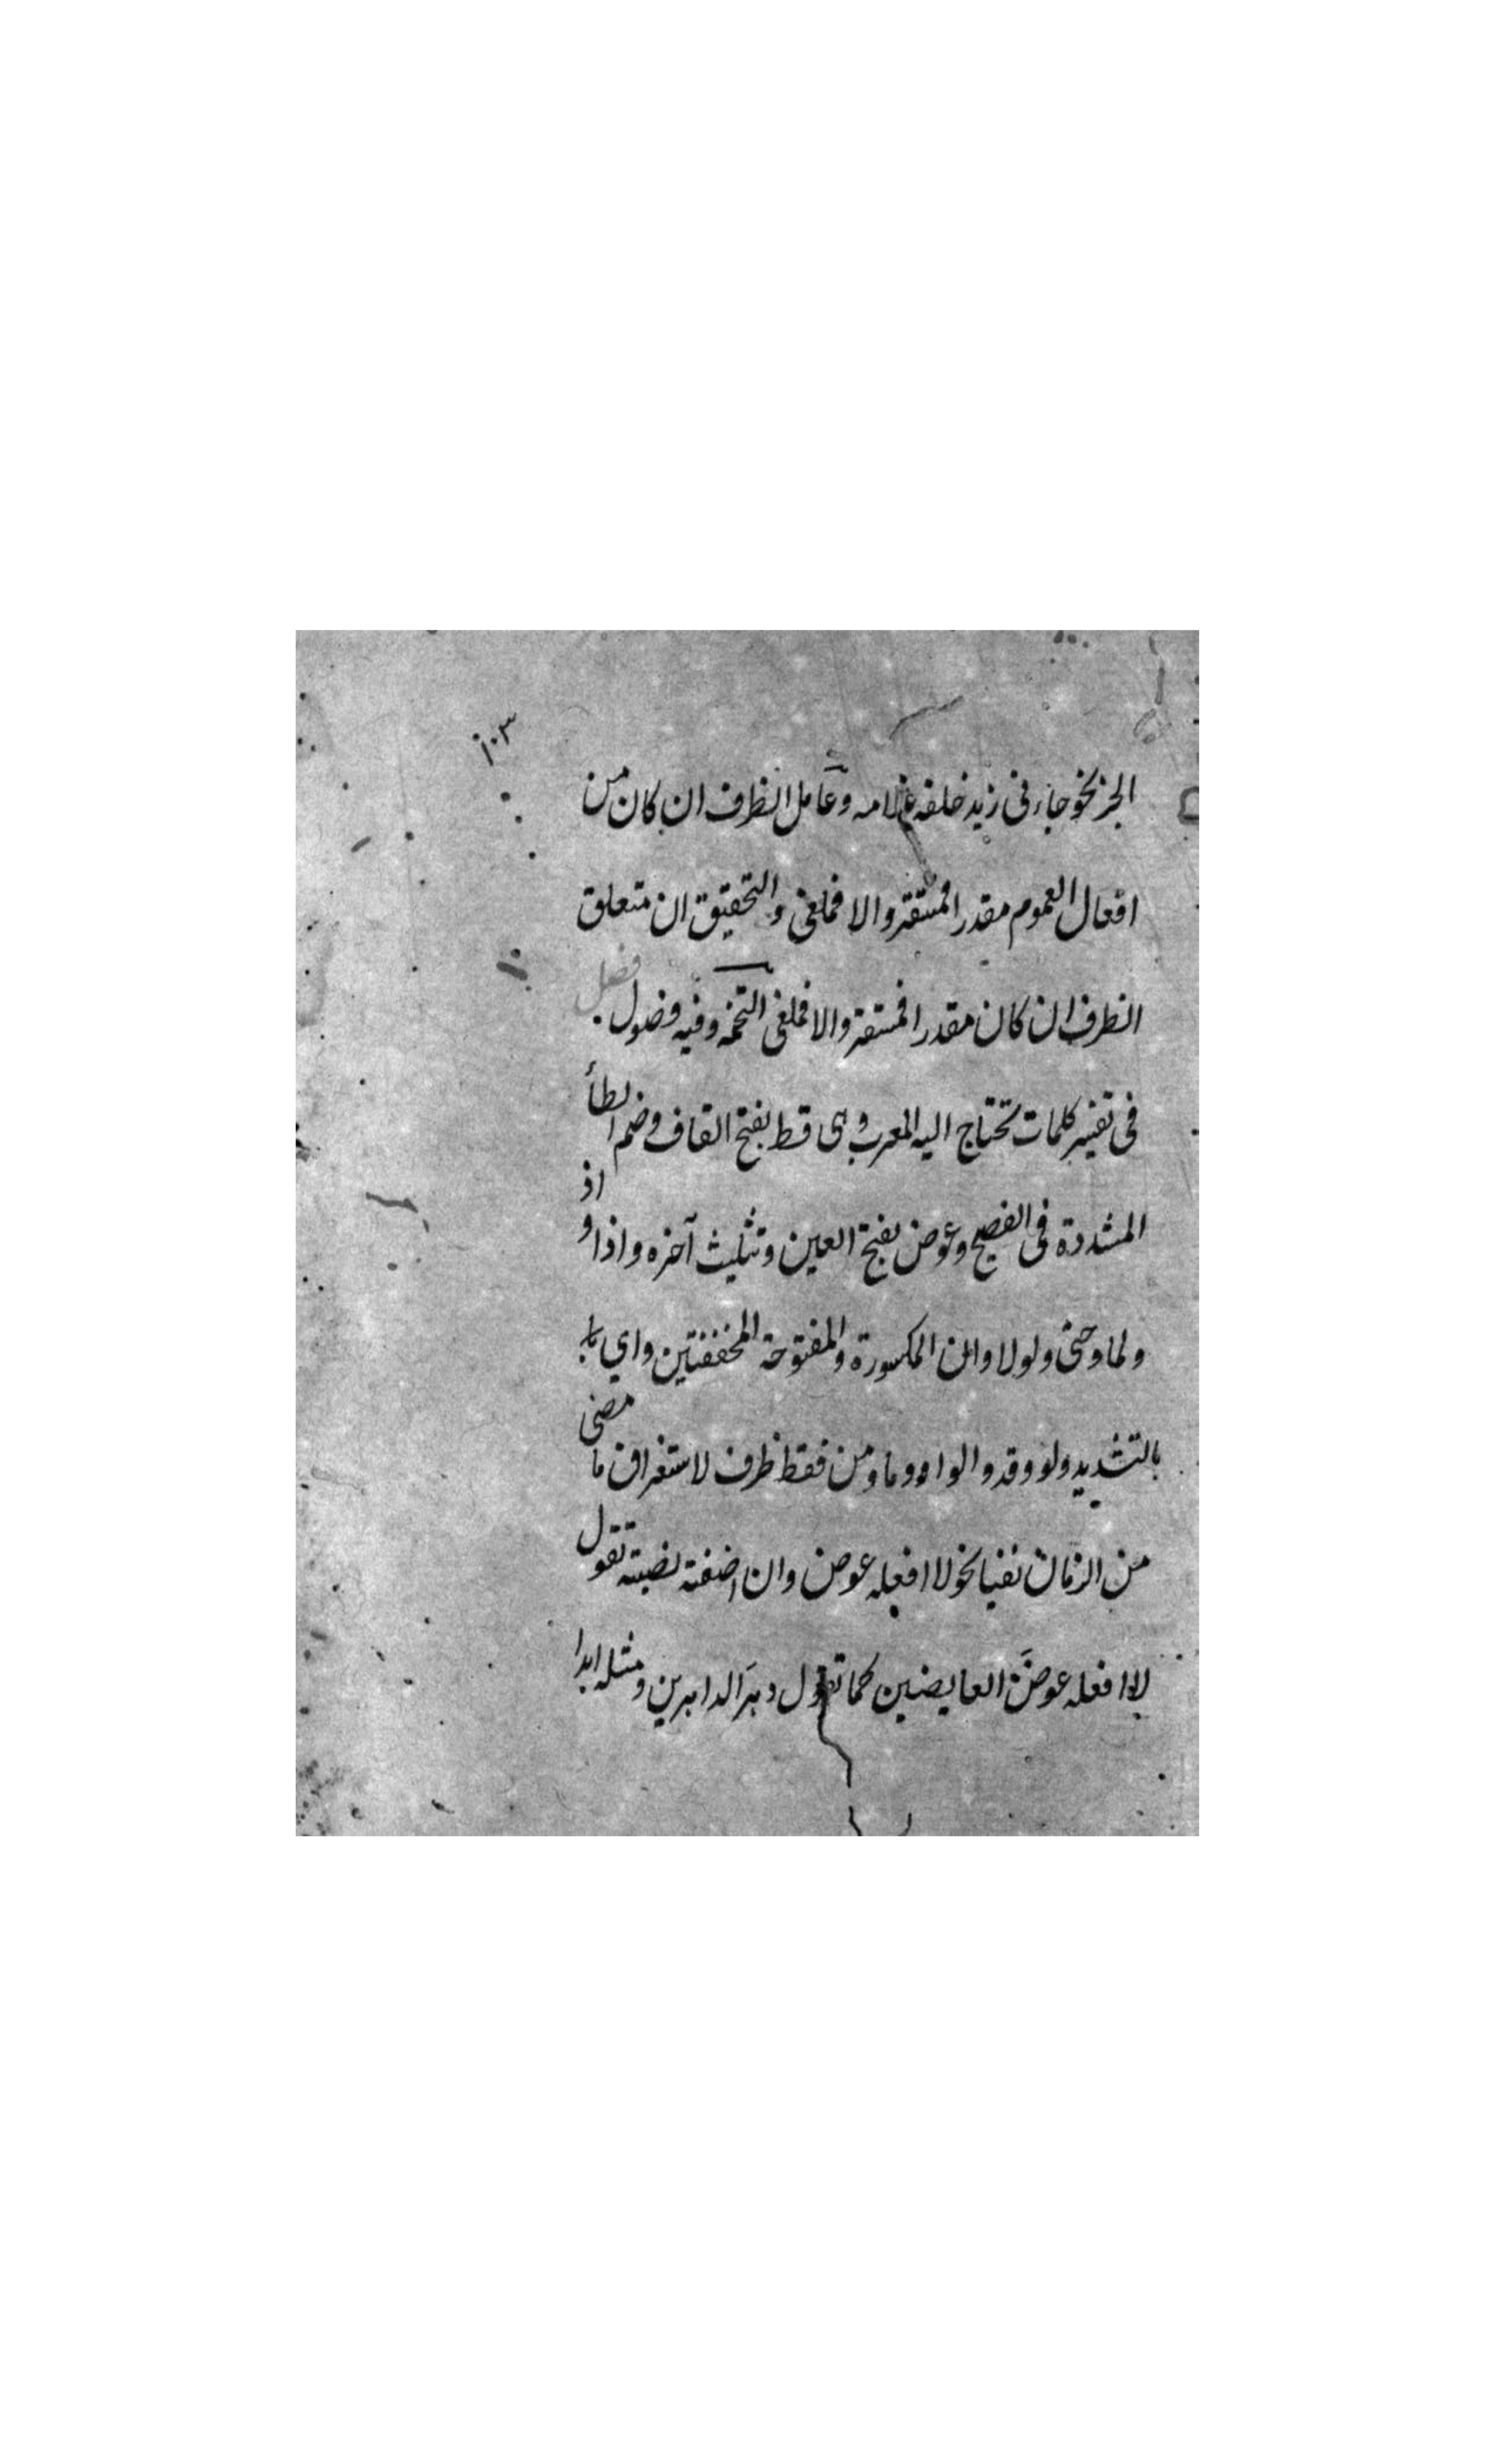 ١٠٣
الجر نحو جاءنی زید خلفه غلامه وعامل الظرف ان کان من
افعال العموم مقدرا فمستقر والا فملغی والتحقیق ان متعلق
الظرف ان کان مقدرا فمستقر والا فملغی وفیه فصول
فصل
فی تفسیر کلمات تحتاج الیه المعرب وهی قط بفتح القاف وضم الطأ
المشددة فی الفصیح وعوض بفتح العین وتثلیث آخره واذا و اذ
ولما وحتی ولولا وان المکسورة والمفتوحة المخففتین وای
بالتشدید ولو وقد والواو وما ومن فقط ظرف لاستغراق ما مضی
من الزمان نفیا نحو لا افعله عوض وان اضفته نصبته تقول
لا افعله عوضَ العایضین کما تقول دهرَ الداهرین ومثله ابدا